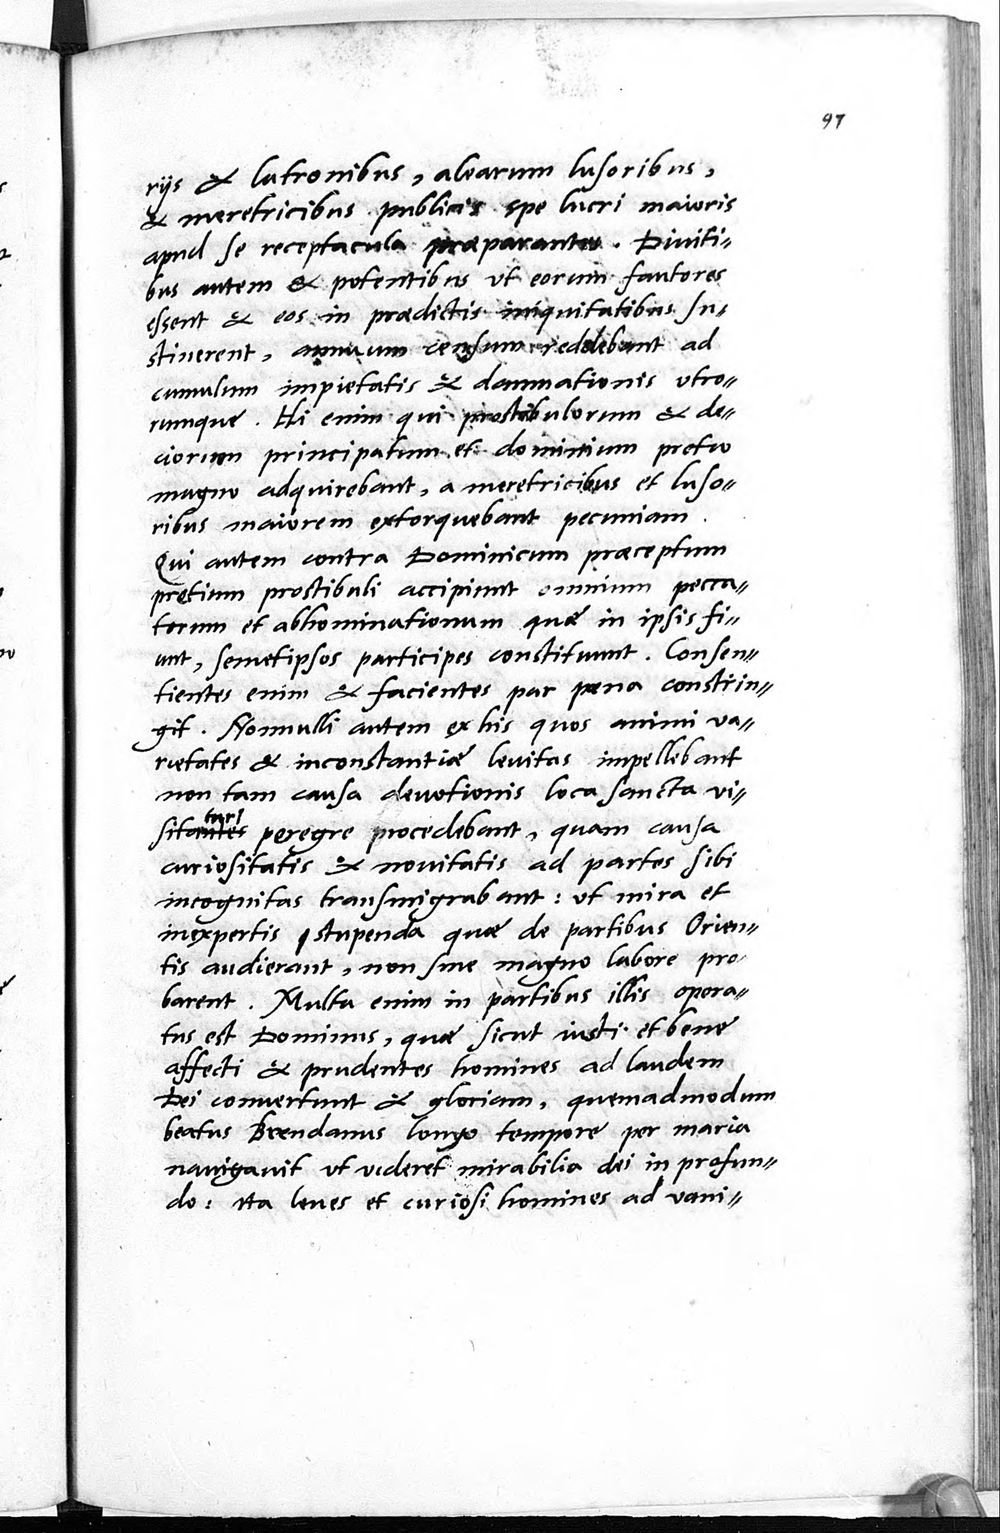 97
rijs & latronibus, alearum lusoribus,
& meretricibus publicis spe lucri maioris
apud se receptacula præparantes. Diuiti=
bus autem & potentibus vt eorum fautores
essent & eos in prædictis iniquitatibus su=
stinerent, annuum censum reddebant ad
cumulum impietatis & damnationis vtro=
rumque. Hi enim qui prostibulorum & de=
ciorum principatum et dominium pretio
magno adquirebant, a meretricibus et luso=
ribus maiorem extorquebant pecuniam.
Qui autem contra Dominicum præceptum
pretium prostibuli accipiunt omnium pecca=
torum et abhominationum quæ in ipsis fi=
unt, semetipsos participes constituunt. Consen=
tientes enim & facientes par pœna constrin=
git. Nonnulli autem ex his quos animi va=
rietates & inconstantiæ leuitas impellebant
non tam causa deuotionis loca sancta vi=
turi
sitantes peregre procedebant, quam causa
curiositatis & nouitatis ad partes sibi
incognitas transmigrabant: vt mira et
inexpertis stupenda quæ de partibus Orien=
tis audierant, non sine magno labore pro
barent. Multa enim in partibus illis opera=
tus est Dominus, quæ sicut iusti et bene
affecti & prudentes homines ad laudem
Dei conuertunt & gloriam, quemadmodum
beatus Brendanus longo tempore per maria
nauigauit vt videret mirabilia dei in profun=
do: ita leues et curiosi homines ad vani=